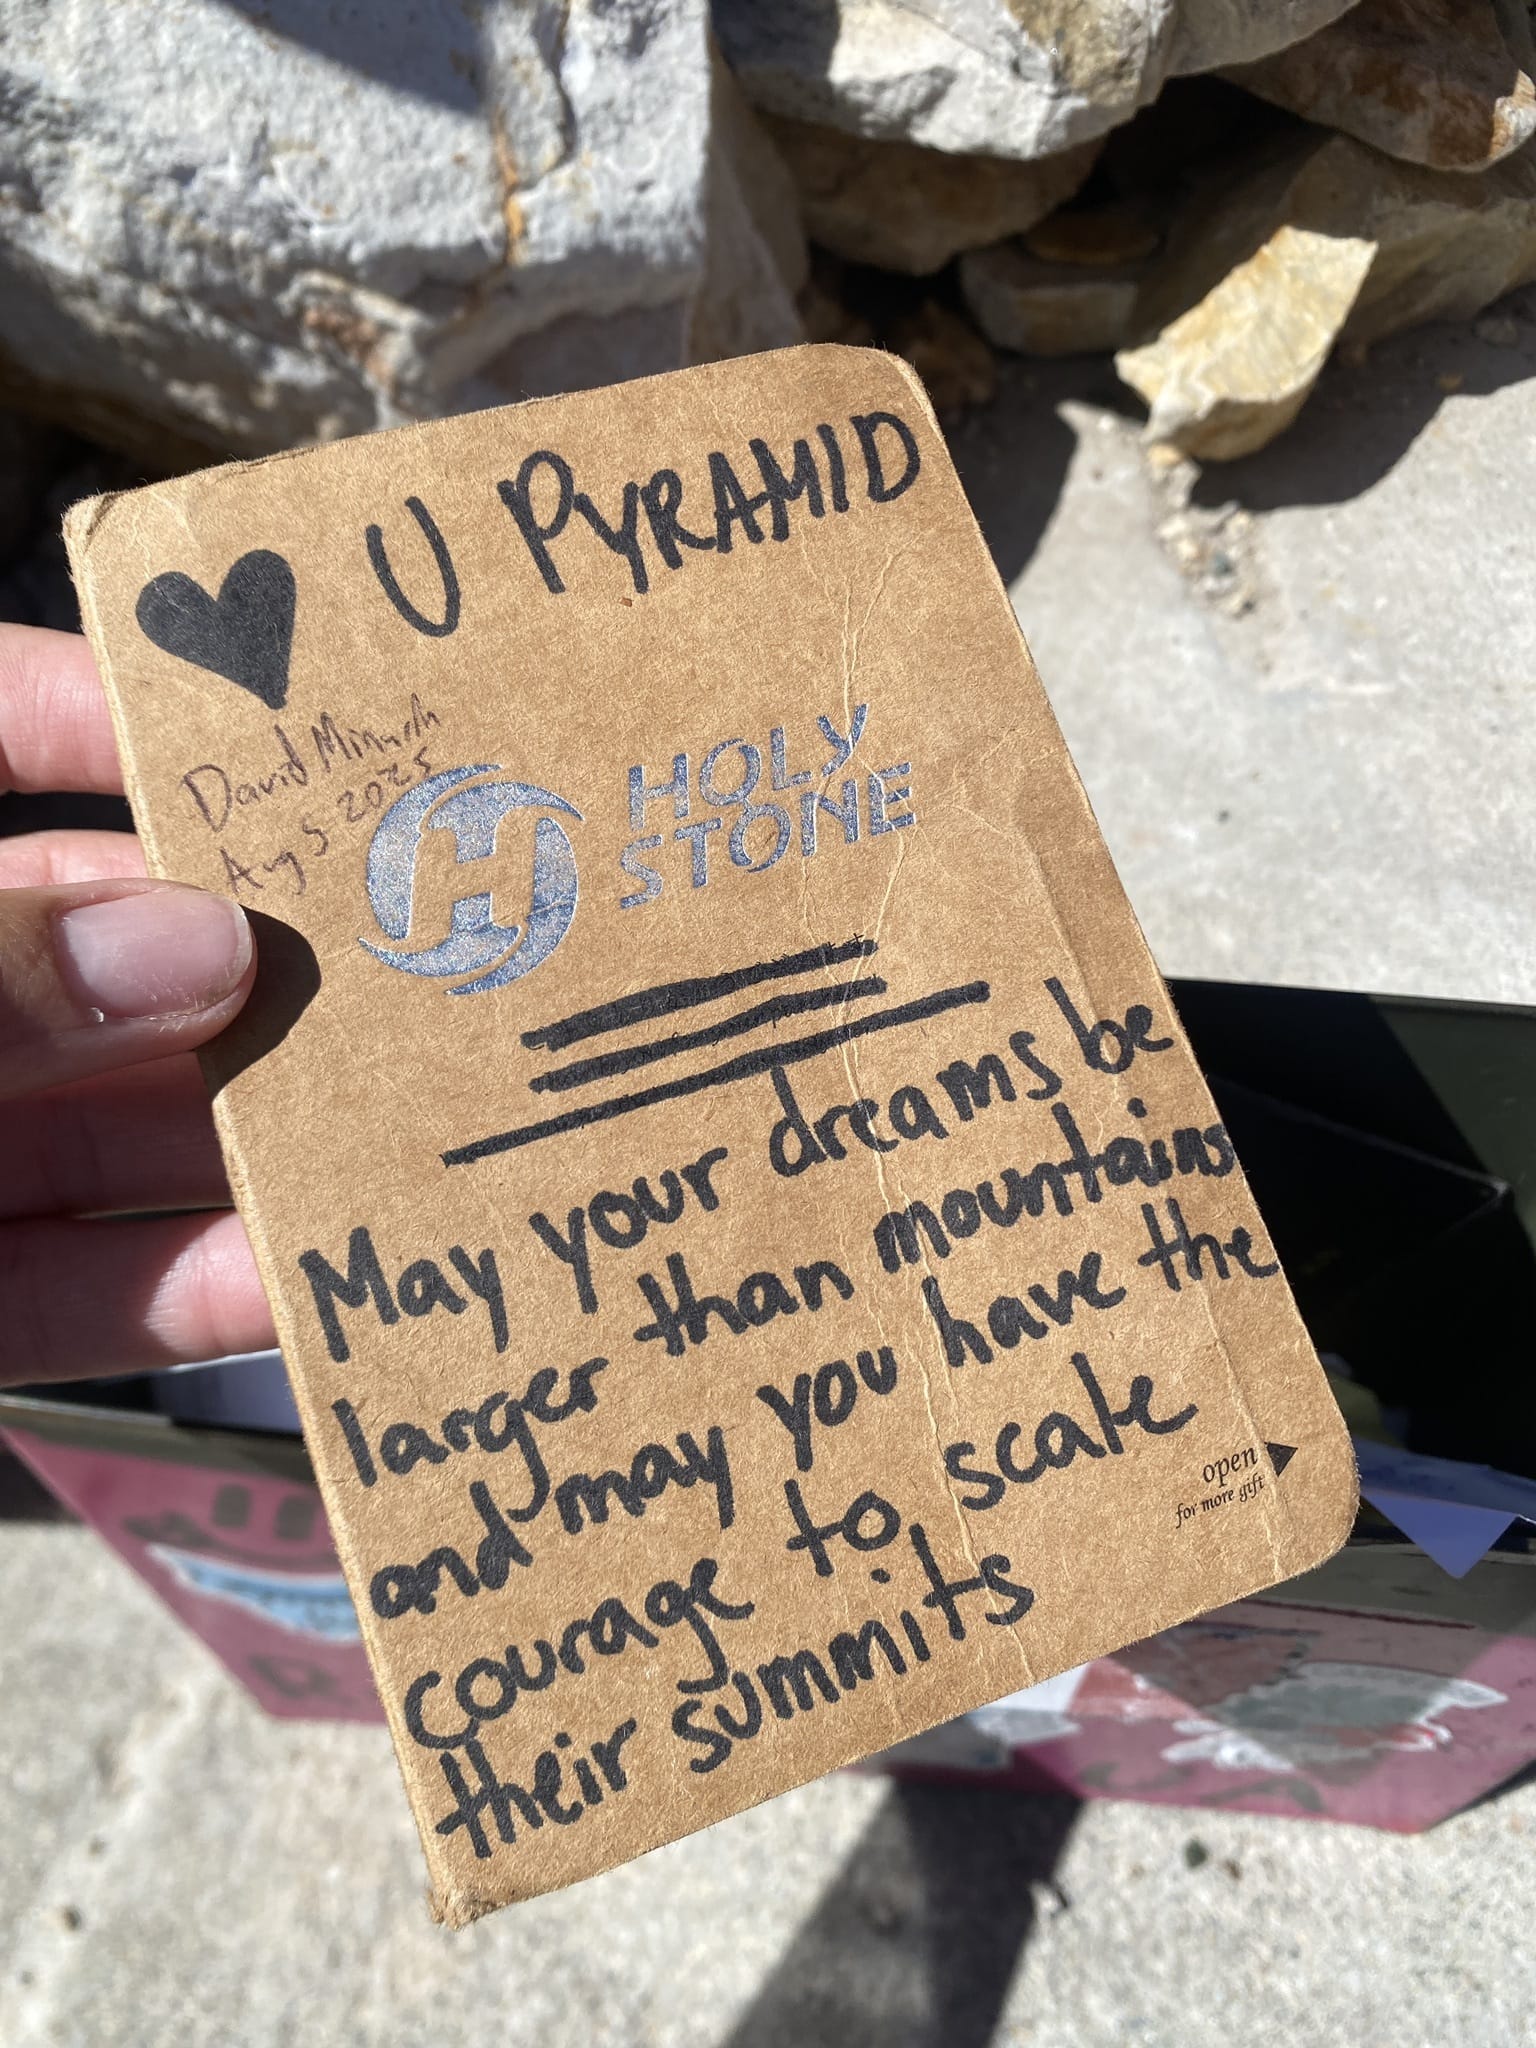 U PYRAMID
David
Aug 5 2025
H
HOLY
STONE
May your dreams be
larger than mountains
and may you have the
courage to scale
their summits
open
for more gift